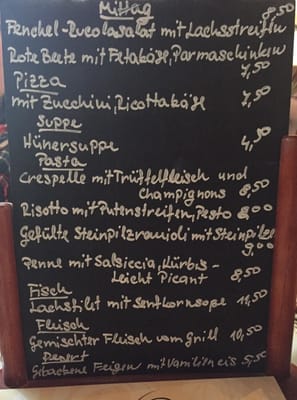 Mittag
8,50
Fenchel-Rucolasalat mit Lachsstreifen
Rote Beete mit Fetakäse, Parmaschinken
7,50
Pizza
mit Zucchini, Ricottakäse 7,50
Suppe
Hünersuppe 4,50
Pasta
Crespelle mit Trüffelfleisch und
Champignons 8,50
Risotto mit Putenstreifen, Pesto 8,00
Gefülte Steinpilzravioli mit Steinpilze
9,00
Penne mit Salsiccia, Kürbis-
Leicht Picant 8,50
Fisch
Lachsfilet mit Senfkornsoße
Fleisch
Gemischter Fleisch vom Grill 10,50
Desert
Gebackene Feigen mit Vanilleneis 5,50